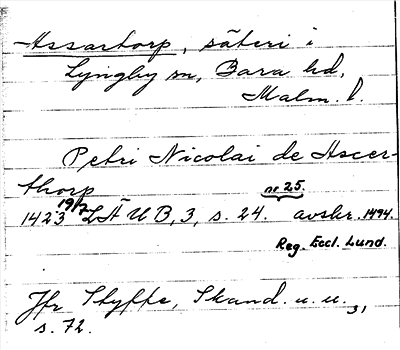 Assartorp, säteri i
Lyngby sn, Bara hd,
Malm. l.
Petri Nicolai de Ascer-
thorp
nr 25.
1423 19/7 LÄUB, 3, s. 24. avskr. 1494.
Reg. Eccl. Lund.
Jfr Styffe, Skand. u. u. 3,
s. 72.